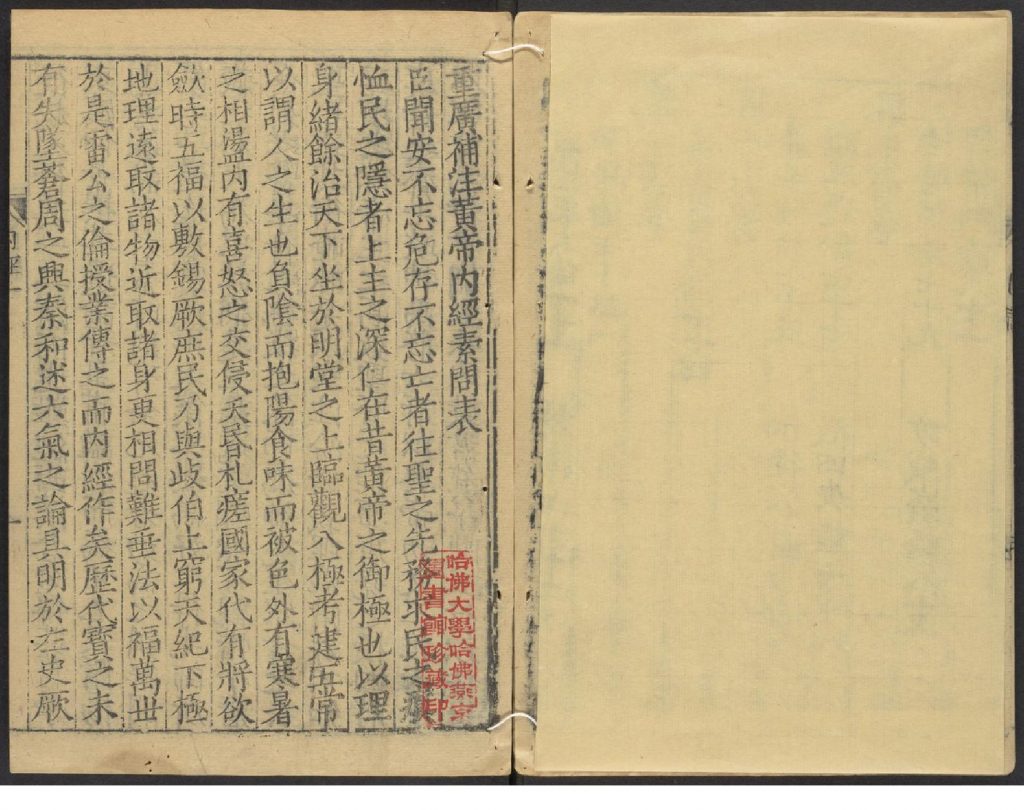 重廣補注黃帝內經素問表
臣聞安不忘危存不忘亡者往聖之先務求民之瘼
恤民之隱者上主之深仁在昔黃帝之御極也以理
身緒餘治天下坐於明堂之上臨觀八極考建五常
以謂人之生也負陰而抱陽食味而被色外有寒暑
之相盪內有喜怒之交侵夭昏札瘥國家代有將欲
斂時五福以敷錫厥庶民乃與歧伯上窮天紀下極
地理遠取諸物近取諸身更相問難垂法以福萬世
於是雷公之倫授業傳之而內經作矣歷代寶之未
有失墜蒼周之興秦和述六氣之論具明於左史厥
內經一
哈佛大學哈佛燕京
圖書館珍藏印